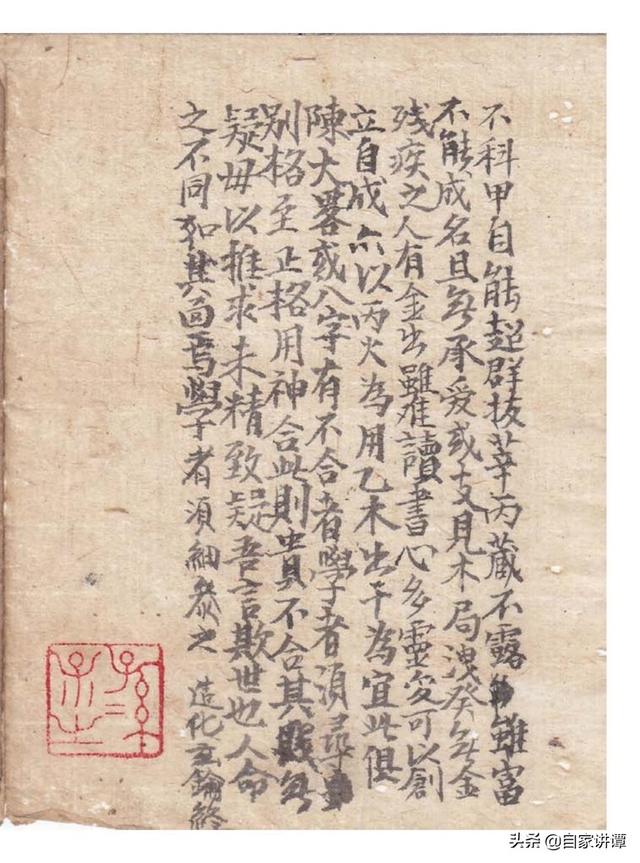 不科甲自能超群拔萃丙藏不露雖富
不能成名且無承爱或支見木局洩癸無金
残疾之人有金出雖讀書心多靈変可以創
立自成亦以丙火為用乙木出干為宜此俱
陳大畧或八字有不合者學者須尋
别格至正格用神合此則貴不合其賤無
疑毋以推求未精致疑吾言欺世也人命
之不同如其面焉學者須細叅之 造化玄鑰終
头条 @自家讲谭